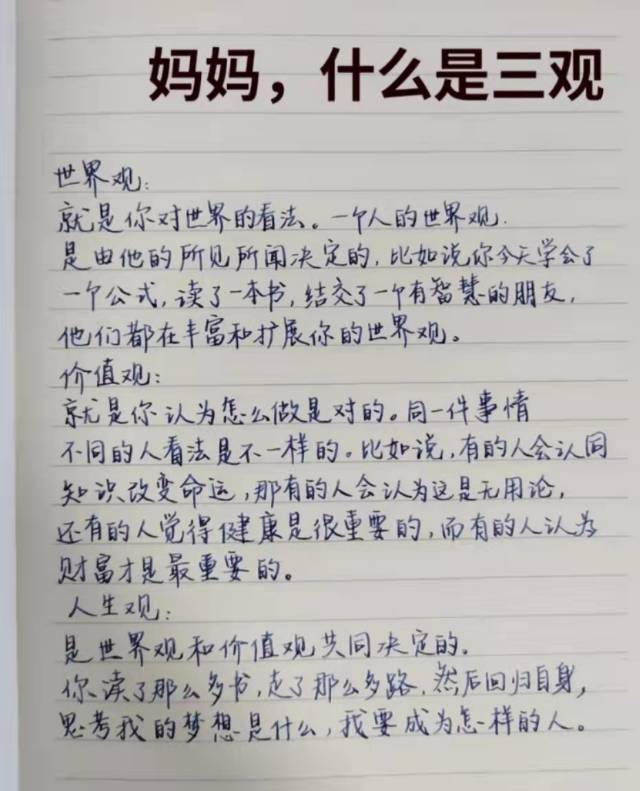 妈妈，什么是三观
世界观：
就是你对世界的看法。一个人的世界观.
是由他的所见所闻决定的，比如说你今天学会了
一个公式，读了一本书，结交了一个有智慧的朋友，
他们都在丰富和扩展你的世界观。
价值观：
就是你认为怎么做是对的。同一件事情
不同的人看法是不一样的。比如说，有的人会认同
知识改变命运，那有的人会认为这是无用论，
还有的人觉得健康是很重要的，而有的人认为
财富才是最重要的。
人生观：
是世界观和价值观共同决定的.
你读了那么多书，走了那么多路，然后回归自身，
思考我的梦想是什么，我要成为怎样的人。